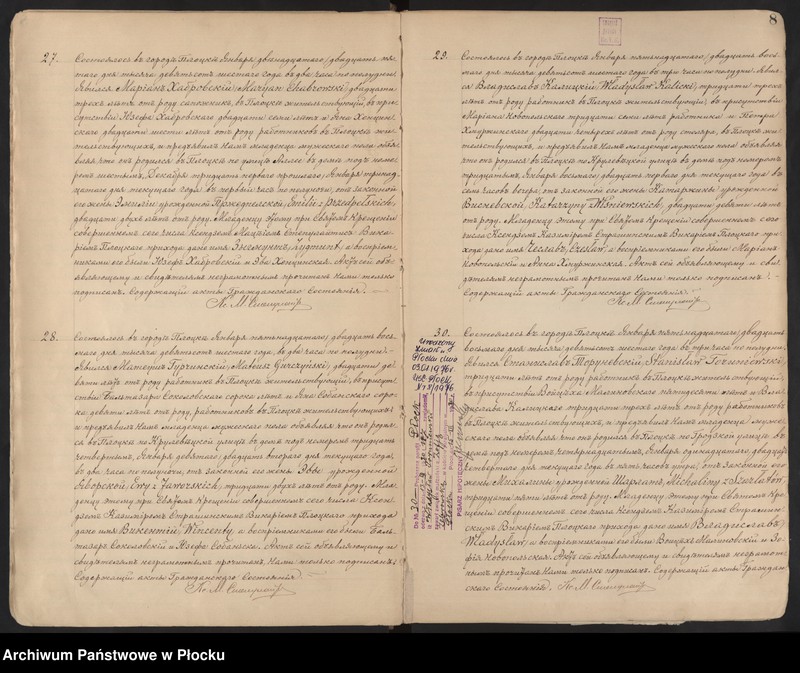 27. Состоялось въ городѣ Плоцкѣ Января двенадцатаго/двадцать пя-
таго дня тысяча девятьсотъ шестаго года въ два часа по полудни.
Явился Маріанъ Хабровскій /Maryan Chabrowski/ двадцати
трехъ лѣтъ отъ роду сапожникъ, въ Плоцкѣ жительствующій въ при-
сутствіи Іосифа Хабровскаго двадцати семи лѣтъ и
двадцати шести лѣтъ отъ роду работниковъ въ Плоцкѣ жи-
тельствующихъ, и предъявилъ Намъ младенца мужескаго пола объя-
вляя что онъ родился въ Плоцкѣ по улицѣ Аллеѣ въ домѣ подъ номе-
ромъ шестымъ, Декабря тридцать перваго прошлаго/Января тринад-
цатаго дня текущаго года въ первый часъ по полуночи, отъ законной
его жены Эмиліи урожденной Пржедпелской, Emilii z Przedpelskich,
двадцати двухъ лѣтъ отъ роду. Младенцу этому при Святомъ Крещеніи
совершенномъ сего числа Ксендзомъ Вика-
ріемъ Плоцкаго прихода дано имя Зигмунтъ, Zygmunt, а воспріем-
никами его были Іосифъ Хабровскій и Эва. Актъ сей объ-
являющему и свидѣтелямъ неграмотнымъ прочитанъ Нами только
подписанъ. Содержащій акты Гражданскаго Состоянія.
28. Состоялось въ городѣ Плоцкѣ Января пятьнадцатаго/двадцать вось-
маго дня тысяча девятьсотъ шестаго года, въ два часа по полудни.
Явился Матеушъ Гурчинскій /Mateusz Gurczyński/, двадцати де-
вяти лѣтъ отъ роду работникъ въ Плоцкѣ жительствующій, въ присут-
ствіи Бальтазара Соколовскаго сорока лѣтъ и Яна Собанскаго соро-
ка девяти лѣтъ отъ роду, работниковъ въ Плоцкѣ жительствующихъ
и предъявилъ Намъ младенца мужескаго пола объявляя что онъ родил-
ся въ Плоцкѣ по Крулевѣцкой улицѣ въ домѣ подъ номеромъ тридцать
четвертымъ, Января девятаго/двадцать втораго дня текущаго года
въ два часа по полуночи, отъ законной его жены Эвы урожденной
Яворской, Ewy z Jaworskich, тридцати двухъ лѣтъ отъ роду. Мла-
денцу этому при Святомъ Крещеніи совершенномъ сего числа Ксен-
дзомъ Казиміромъ Страшинскимъ Викаріемъ Плоцкаго прихода
дано имя Викентій, Wincenty, а воспріемниками его были Баль-
тазаръ Соколовскій и Іозефа Собанская. Актъ сей объявляющему и
свидѣтелямъ неграмотнымъ прочитанъ, Нами только подписанъ.
Содержащій акты Гражданскаго Состоянія.
8
29. Состоялось въ городѣ Плоцкѣ Января пятьнадцатаго/двадцать вось-
маго дня тысяча девятьсотъ шестаго года въ три часа по полудни. Явил-
ся Владиславъ Калицкій /Władysław Kalicki/, тридцати трехъ
лѣтъ отъ роду работникъ въ Плоцкѣ жительствующій, въ присутствіи
Маріана Новопольскаго тридцати семи лѣтъ работника и Петра
двадцати четырехъ лѣтъ отъ роду столяра, въ Плоцкѣ жи-
тельствующихъ, и предъявилъ Намъ младенца мужескаго пола объявляя
что онъ родился въ Плоцкѣ по Крулевѣцкой улицѣ въ домѣ подъ номеромъ
тридцатымъ, Января восьмаго/двадцать перваго дня текущаго года въ
семь часовъ вечера, отъ законной его жены Катаржины урожденной
Висневской, Katarzyny Wiśniewskich, двадцати девяти лѣтъ
отъ роду. Младенцу этому при Святомъ Крещеніи совершенномъ сего
числа Ксендзомъ Казиміромъ Страшинскимъ Викаріемъ Плоцкаго при-
хода дано имя Чеславъ, Czesław, а воспріемниками его были Маріанъ
Новопольскій и Анна. Актъ сей объявляющему и сви-
дѣтелямъ неграмотнымъ прочитанъ Нами только подписанъ.
Содержащій акты Гражданскаго Состоянія.
30. Состоялось въ городѣ Плоцкѣ Января пятьнадцатаго/двадцать
восьмаго дня тысяча девятьсотъ шестаго года, въ три часа по полудни.
Явился Станиславъ Торуневскій, Stanisław Toruniewski,
тридцати лѣтъ отъ роду работникъ въ Плоцкѣ жительствующій,
въ присутствіи Войцѣха Малиновскаго пятидесяти лѣтъ и Вла-
дислава Калицкаго тридцати трехъ лѣтъ отъ роду работниковъ
въ Плоцкѣ жительствующихъ, и предъявилъ Намъ младенца муже-
скаго пола объявляя что онъ родился въ Плоцкѣ по Гродзкой улицѣ въ
домѣ подъ номеромъ четырнадцатымъ, Января одинадцатаго/двадцать
четвертаго дня текущаго года въ пять часовъ утра, отъ законной его
жены Михалины урожденной Шарлатъ, Michaliny z Szarlatów,
тридцати пяти лѣтъ отъ роду. Младенцу этому при Святомъ Кре-
щеніи совершенномъ сего числа Ксендзомъ Казиміромъ Страшин-
скимъ Викаріемъ Плоцкаго прихода дано имя Владиславъ,
Władysław, а воспріемниками его были Войцѣхъ Малиновскій и
Новопольская. Актъ сей объявляющему и свидѣтелямъ неграмот-
нымъ прочитанъ Нами только подписанъ. Содержащій акты Граждан-
скаго Состоянія.
Archiwum Państwowe w Płocku